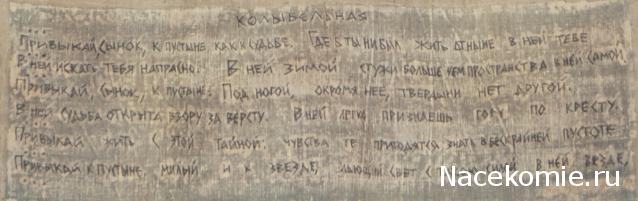 КОЛЫБЕЛЬНАЯ
ПРИВЫКАЙ, СЫНОК, К ПУСТЫНЕ КАК К СУДЬБЕ. ГДЕ Б ТЫ НИ БЫЛ ЖИТЬ ОТНЫНЕ В НЕЙ ТЕБЕ
В НЕЙ ИСКАТЬ ТЕБЯ НАПРАСНО. В НЕЙ ЗИМОЙ СТУЖИ БОЛЬШЕ ЧЕМ ПРОСТРАНСТВА В НЕЙ САМОЙ.
ПРИВЫКАЙ, СЫНОК, К ПУСТЫНЕ. ПОД НОГОЙ, ОКРОМЯ НЕЕ, ТВЕРДЫНИ НЕТ ДРУГОЙ.
В НЕЙ СУДЬБА ОТКРЫТА ВЗОРУ ЗА ВЕРСТУ. В НЕЙ ЛЕГКО ПРИЗНАЕШЬ ГОРУ ПО КРЕСТУ.
ПРИВЫКАЙ ЖИТЬ С ЭТОЙ ТАЙНОЙ: ЧУВСТВА ТЕ ПРИГОДЯТСЯ, ЗНАТЬ В БЕСКРАЙНЕЙ ПУСТОТЕ
ПРИВЫКАЙ К ПУСТЫНЕ, МИЛЫЙ И К ЗВЕЗДЕ, ЛЬЮЩЕЙ СВЕТ С СИЛОЙ В НЕЙ ВЕЗДЕ,
www.Nacekomie.ru